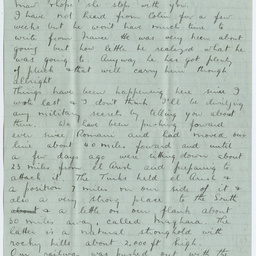 now & hope he stop with you.
I have not heard from Colin for a few
weeks but he won't have much time to
write from France. He was very keen about
going but how little he realized what he
was going to. Anyway he has got plenty
of pluck & that will carry him through
allright.
Things have been happening here since I
wrote last & I don't think I'll be divulging
any military secrets by telling you about
them. We have been pushing forward
ever since Romani and had moved our
line about 40 miles forward and until
a few days ago were sitting down about
25 miles from El Arish and preparing to
attack it. The Turks held El Arish
a position 7 miles on one side of it &
also a very strong place to the South
& a little on our flank about
30 miles away, called Maghara. The
latter is a natural stronghold with
rocky hills about 2,000 ft high.
Our railway was pushed out with the